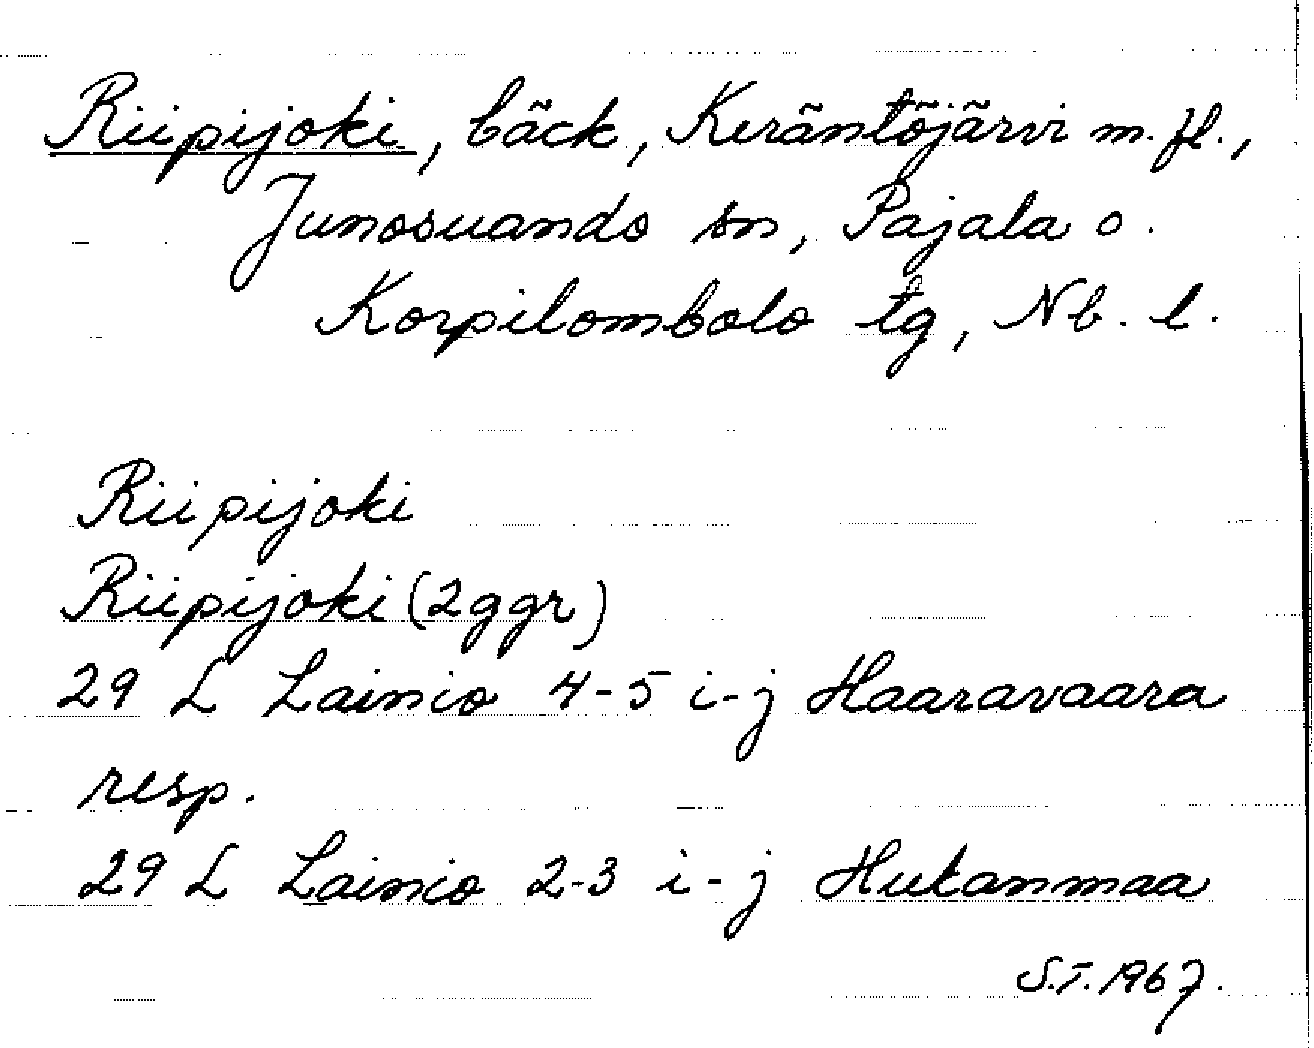 Riipijoki, bäck, Keräntöjärvi m.fl.,
Junosuando sn, Pajala o.
Korpilombolo tg, Nb. l.
Riipijoki
Riipijoki (2ggr)
29 L Lainio 4-5 i-j Haaravaara
resp.
29 L Lainio 2-3 i-j Hukanmaa
S.T. 1967.